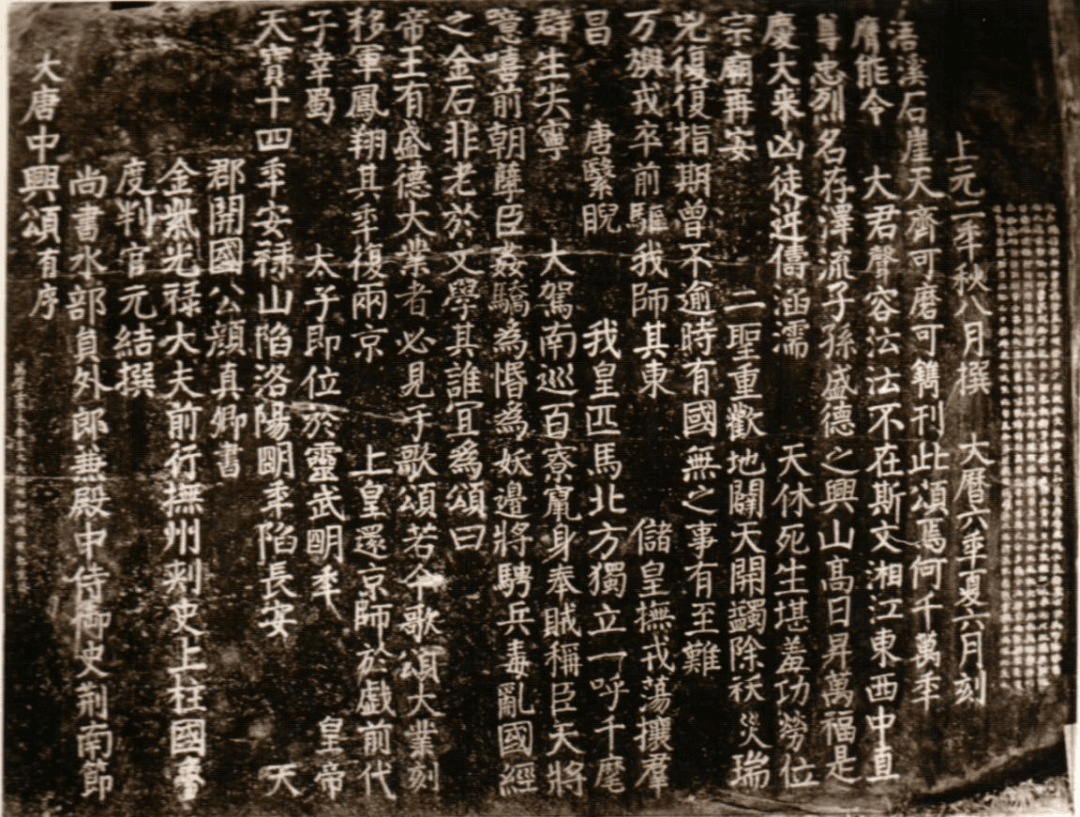 大唐中興頌有序
尚書水部員外郎兼殿中侍御史荊南節
度判官元結撰
金紫光祿大夫前行撫州刺史上柱國魯
郡開國公顏真卿書
天寶十四秊安祿山陷洛陽眀秊陷長安 天
子幸蜀 太子即位於靈武眀秊 皇帝
移軍鳳翔其秊復兩京 上皇還京師於戲前代
帝王有盛德大業者必見于歌頌若今歌頌大業刻
之金石非老於文學其誰宜為頌曰
噫嘻前朝孽臣姦驕為惛為妖邊將騁兵毒亂國經
群生失寧 大駕南巡百寮竄身奉賊稱臣天將
昌 唐繄睨 我皇匹馬北方獨立一呼千麾
万旟戎卒前驅我師其東 儲皇撫戎蕩攘羣
兇復復指期曾不逾時有國無之事有至難
宗廟再安 二聖重歡地闢天開蠲除祅災瑞
慶大来凶徒逆儔涵濡 天休死生堪羞功勞位
尊忠烈名存澤流子孫盛德之興山高日昇萬福是
膺能令 大君聲容沄沄不在斯文湘江東西中直
浯溪石崖天齊可磨可鐫刊此頌焉何千萬秊
上元二秊秋八月撰 大曆六秊夏六月刻